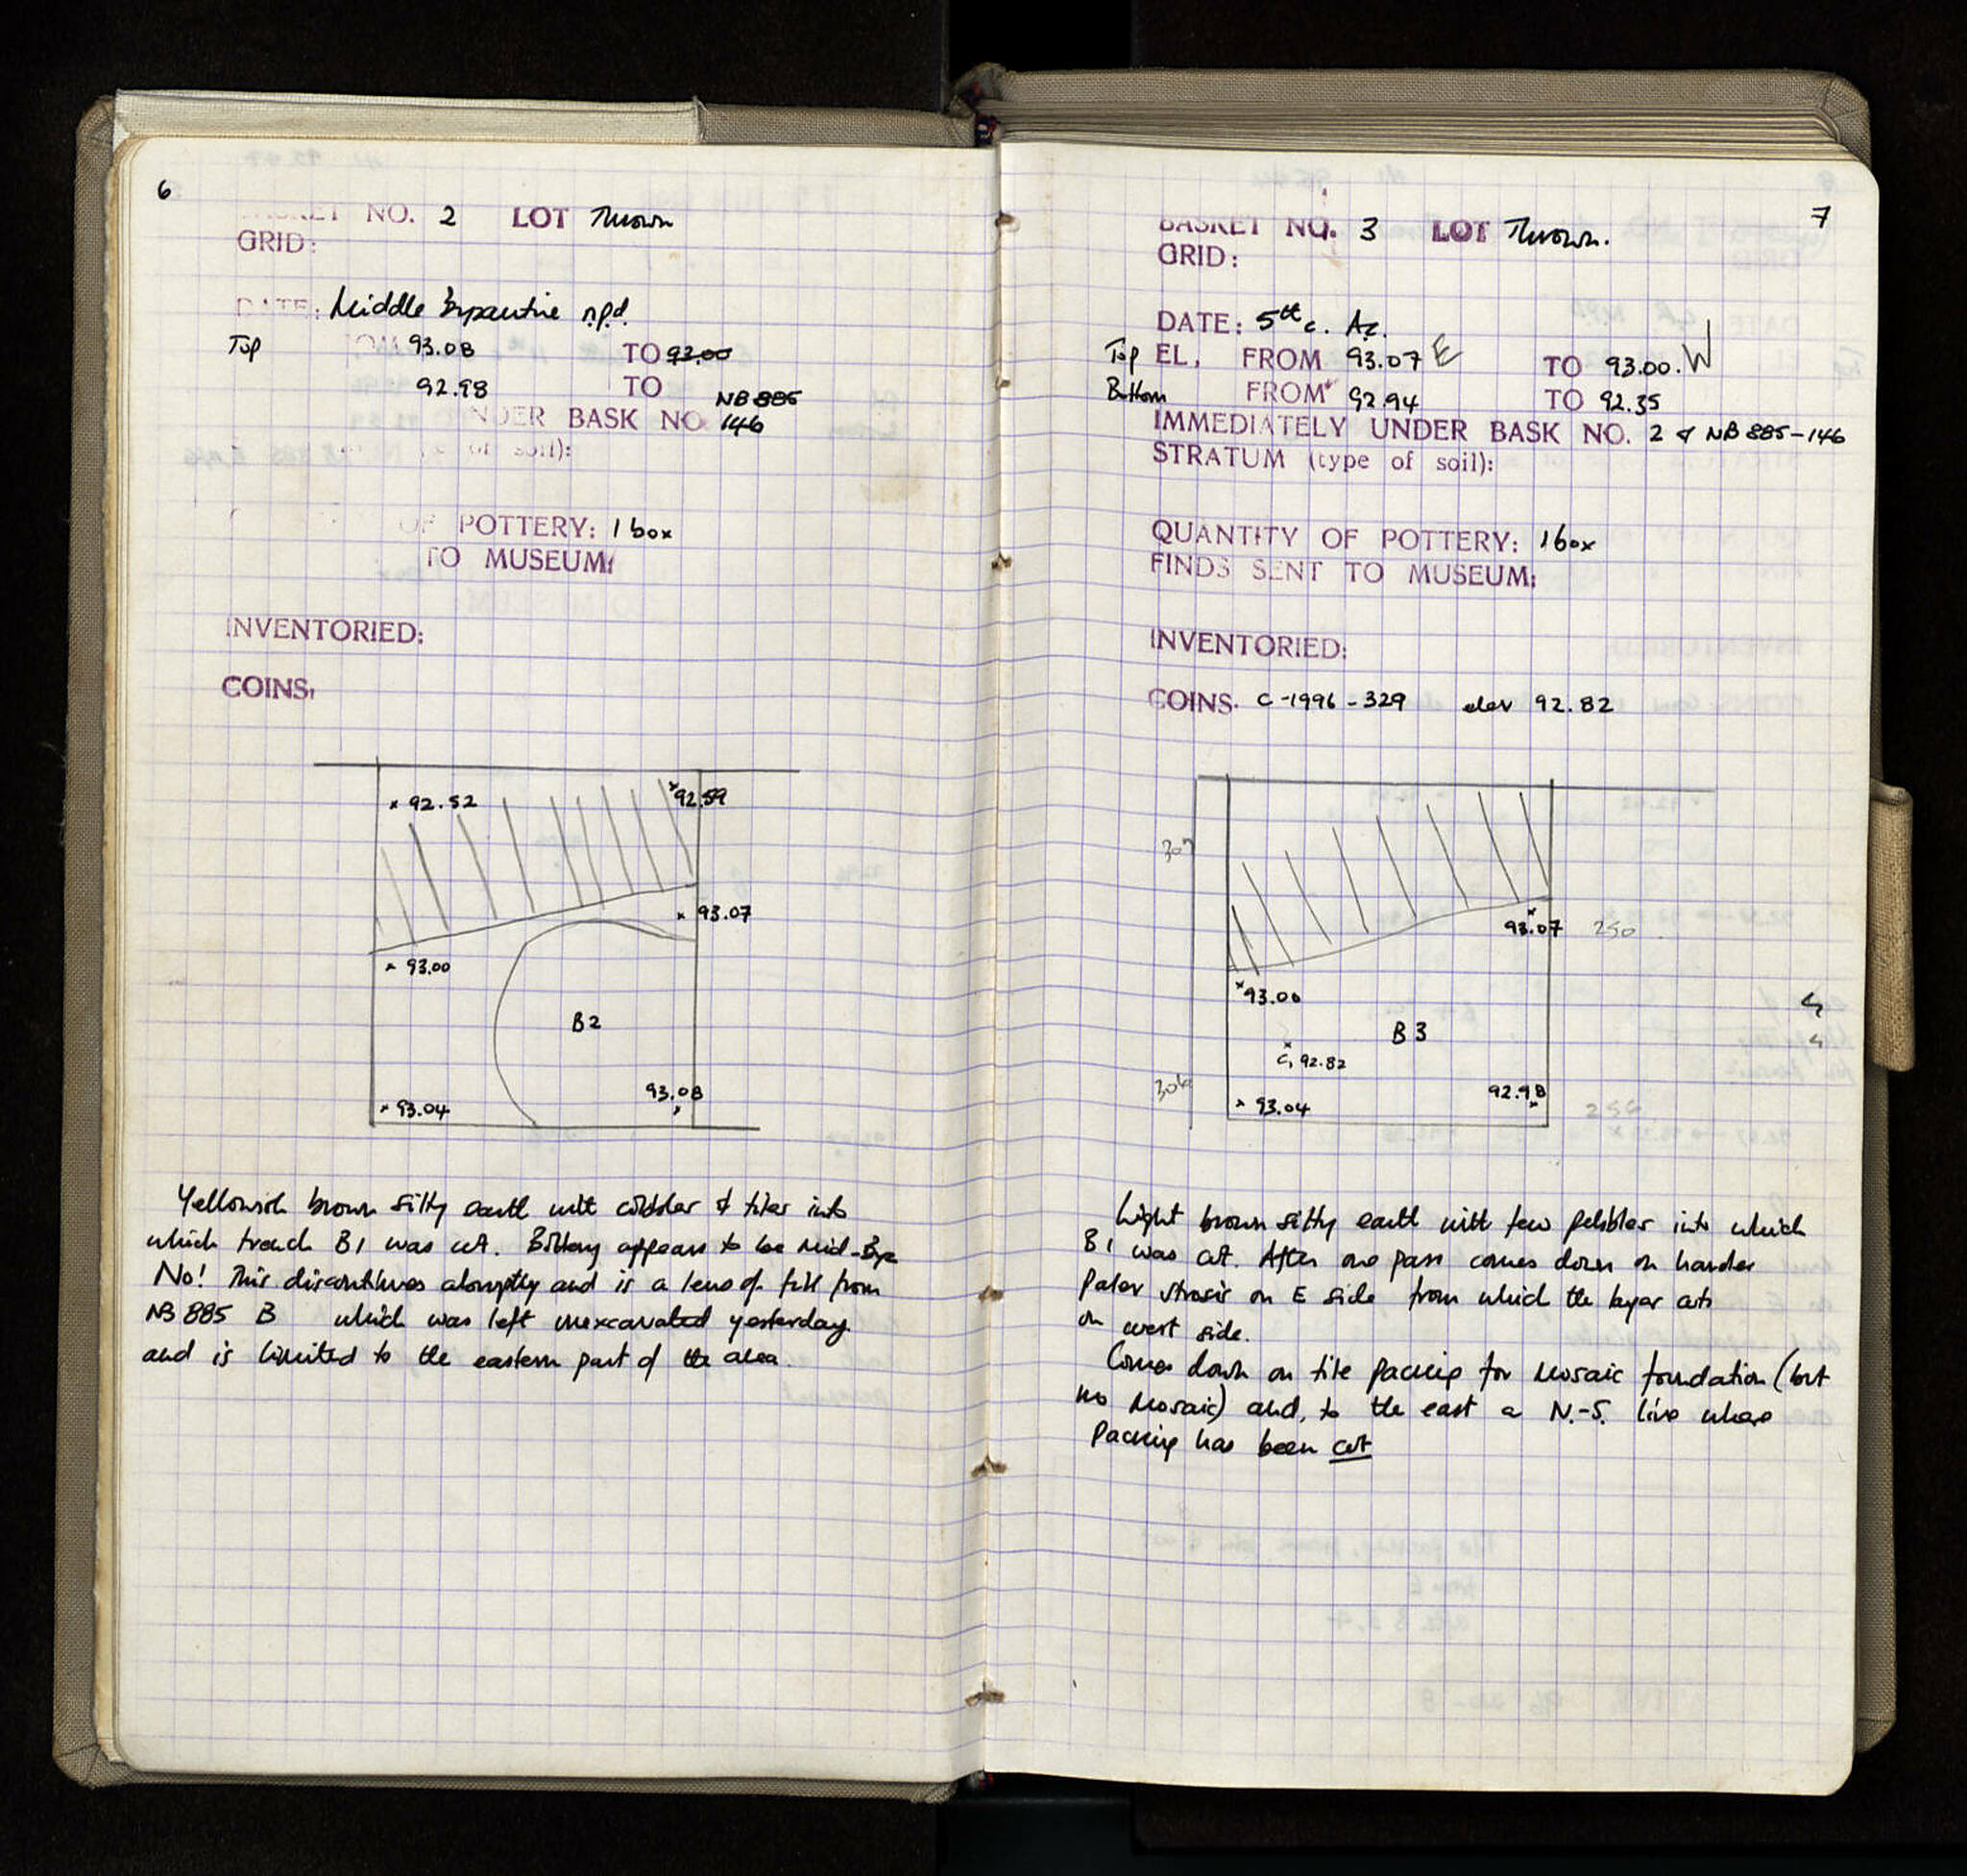 6
BASKET NO. 2 LOT Thrown
GRID:
DATE: Middle Byzantine n.p.d.
Top FROM 93.08 TO 93.00
92.98 TO
UNDER BASK NO. NB 885 146
of soil):
OF POTTERY: 1 box
TO MUSEUM:
INVENTORIED:
COINS:
× 92.52
× 92.59
× 93.07
× 93.00
B2
93.08
× 93.04
Yellowish brown silty earth with cobbles & tiles into
which trench B1 was cut. Pottery appears to be Mid-Byz
No! This discontinues abruptly and is a lens of fill from
NB 885 B which was left unexcavated yesterday
and is limited to the eastern part of the area.
7
BASKET NO. 3 LOT Thrown.
GRID:
DATE: 5th c. A.C.
Top EL, FROM 93.07 E TO 93.00. W
Bottom FROM 92.94 TO 92.35
IMMEDIATELY UNDER BASK NO. 2 & NB 885-146
STRATUM (type of soil):
QUANTITY OF POTTERY: 1 box
FINDS SENT TO MUSEUM:
INVENTORIED:
COINS. C-1996-329 elev 92.82
307
93.07
250
× 93.00
B3
× C, 92.82
306
92.98
× 93.04
256
Light brown silty earth with few pebbles into which
B1 was cut. After one pass comes down on harder
paler strosis on E side from which the layer cuts
on west side.
Comes down on tile packing for mosaic foundation (but
no mosaic) and, to the east a N.-S. line where
packing has been cut